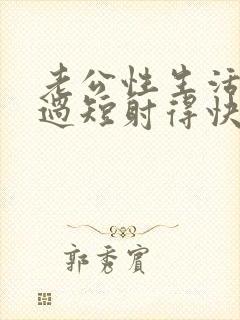 老公性生活
过短射得快
郭秀宾